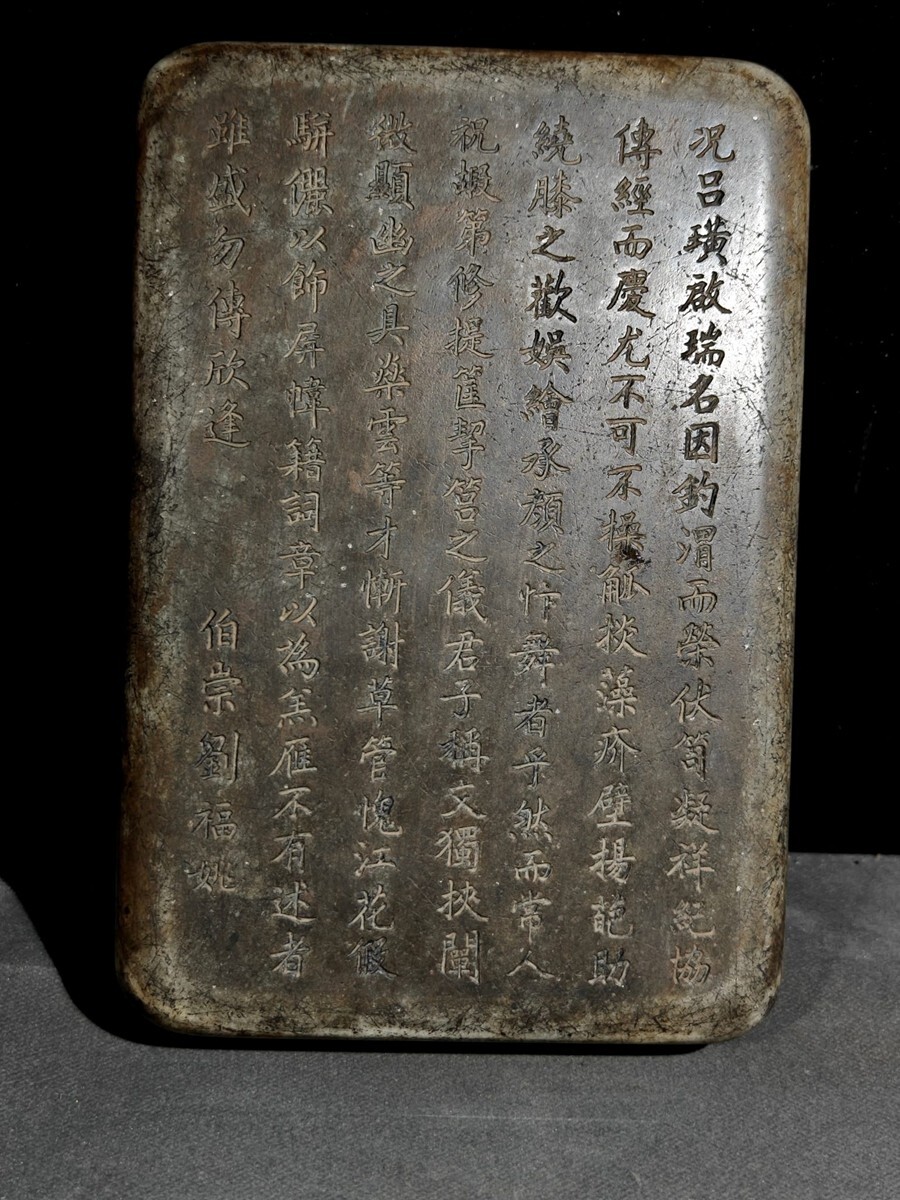 况吕璜啟瑞名因釣渭而榮伏笥凝祥紀協
傳經而慶尤不可不操觚掞藻疥壁揚葩助
繞膝之歡娛繪承顏之忭舞者乎然而常人
祝嘏第修提筐挈筥之儀君子稱文獨挾闡
微顯幽之具燊雲等才慚謝草管愧江花假
駢儷以飾屏幛籍詞章以為羔雁不有述者
雖盛勿傳欣逢
伯崇劉福姚